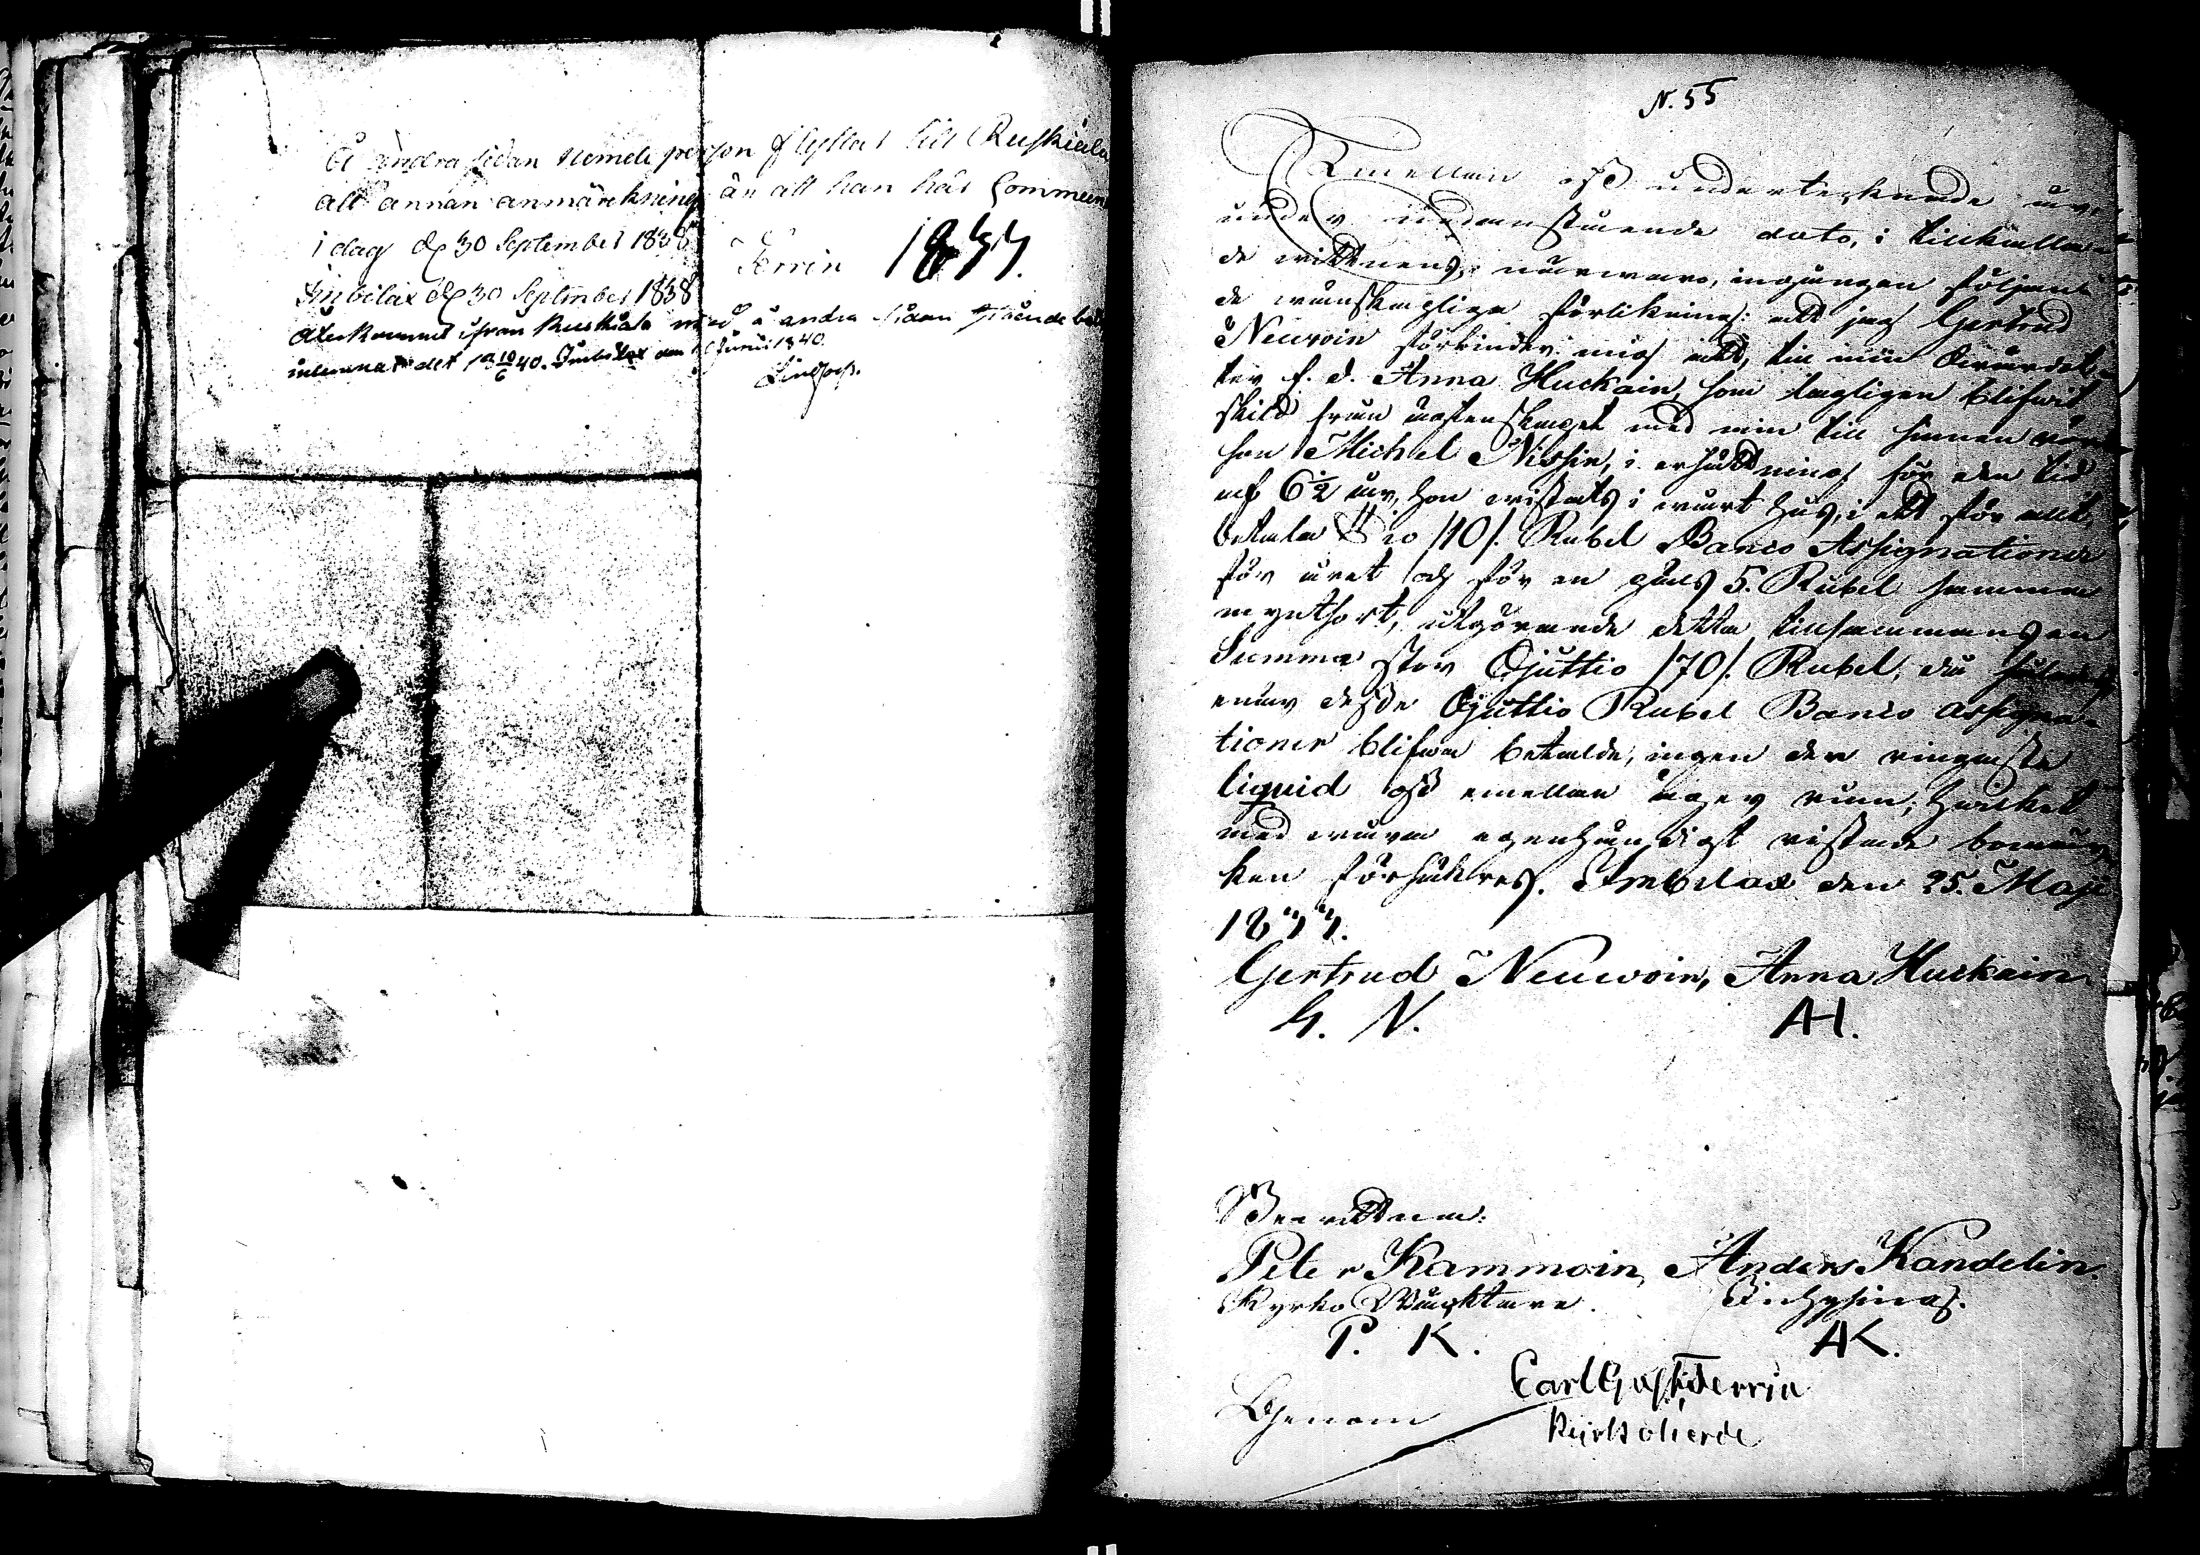 Å andra sidan nemde person flyttat till Ruskiala
att annan anmärckning än att han här Commun
i dag d 30 September 1838
Terrin 1844.
Imbilax d 30 September 1838
Återkommit ifrån Ruskiala med å andra sidan stående bet
inlemnat det 13 10/6 40. Imbilax den Junii 1840.
N. 55
Emellan oss undertecknade är
under nedanstående dato, i tillkallan
de wittnens närwaro, ingången följan
de wänskapliga förlikning: att jag Gertrud
Neuvoin förbinder mig att, till min swärdot
ter f. d. Anna Huckain, som lagligen blifwit
skild från ägtenskapet med min till sinnen
son Michel Nissin, i ersättning för den tid
af 6½ år, hon wistats i wårt hus, i ett för allt,
betala Tio /10/. Rubel Banco Assignationer
för året och för en 5. Rubel samma
myntsort, utgörande detta tillsammans en
Summa stor Sjuttio /70/. Rubel, då
enär desse Sjuttio Rubel Banco Assigna-
tioner blifwa betalde, ingen den ringaste
liquid oss emellan äger rum; hwilket
med wåra egenhändigt ristade bomär
ken försäkras. Imbilax den 25. Maji
1844.
Gertrud Neuwoin, Anna Huckain
G. N. AH.
Bewittna:
Peter Kammoin, Anders Kandelin.
Kyrko Wäcktare. Inhysing.
P. K. AK.
Genom Carl Gust Terrin
Kyrkoherde